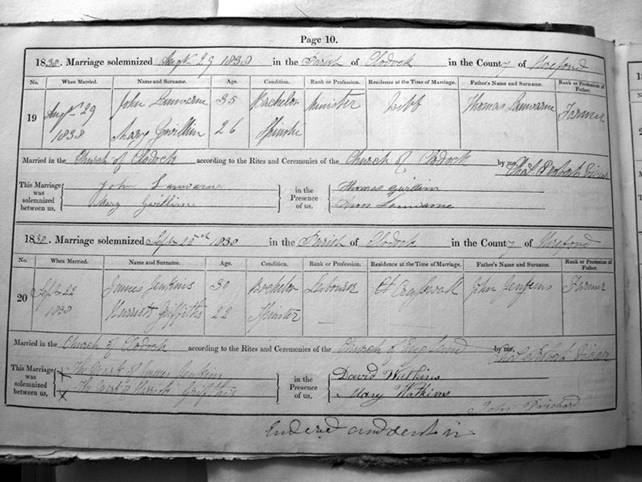 Page 10.
1838. Marriage solemnized Augst 29 1838 in the Parish of Clodock in the County of Hereford
No. When Married. Name and Surname. Age. Condition. Rank or Profession. Residence at the Time of Marriage. Father's Name and Surname. Rank or Profession of Father.
19 Augst 29 John Lanwarne 35 Bachelor Minister Thomas Lanwarne Farmer
1838 Mary Gwillim 26 Spinster
Married in the Church of Clodock according to the Rites and Ceremonies of the Church of Clodock by me,
This Marriage was solemnized between us, John Lanwarne in the Presence of us, Thomas Gwillim
Mary Gwillim Ann Lanwarne
1838. Marriage solemnized 1838 in the Parish of Clodock in the County of Hereford
No. When Married. Name and Surname. Age. Condition. Rank or Profession. Residence at the Time of Marriage. Father's Name and Surname. Rank or Profession of Father.
20 Sept 22 James Jenkins 30 Bachelor Labourer At Craswall John Jenkins Farmer
1838 Harriott Griffiths 22 Spinster —
Married in the Church of Clodock according to the Rites and Ceremonies of the Church of England by me,
This Marriage was solemnized between us, X The mark of James Jenkins in the Presence of us, David Watkins
X The mark of Harriott Griffiths Mary Watkins
John Prichard
Entered and sent in